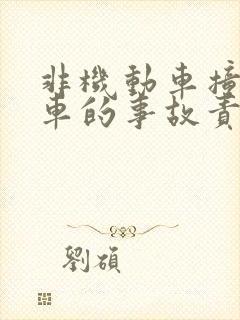 非機動車撞
車的事故責
劉碩